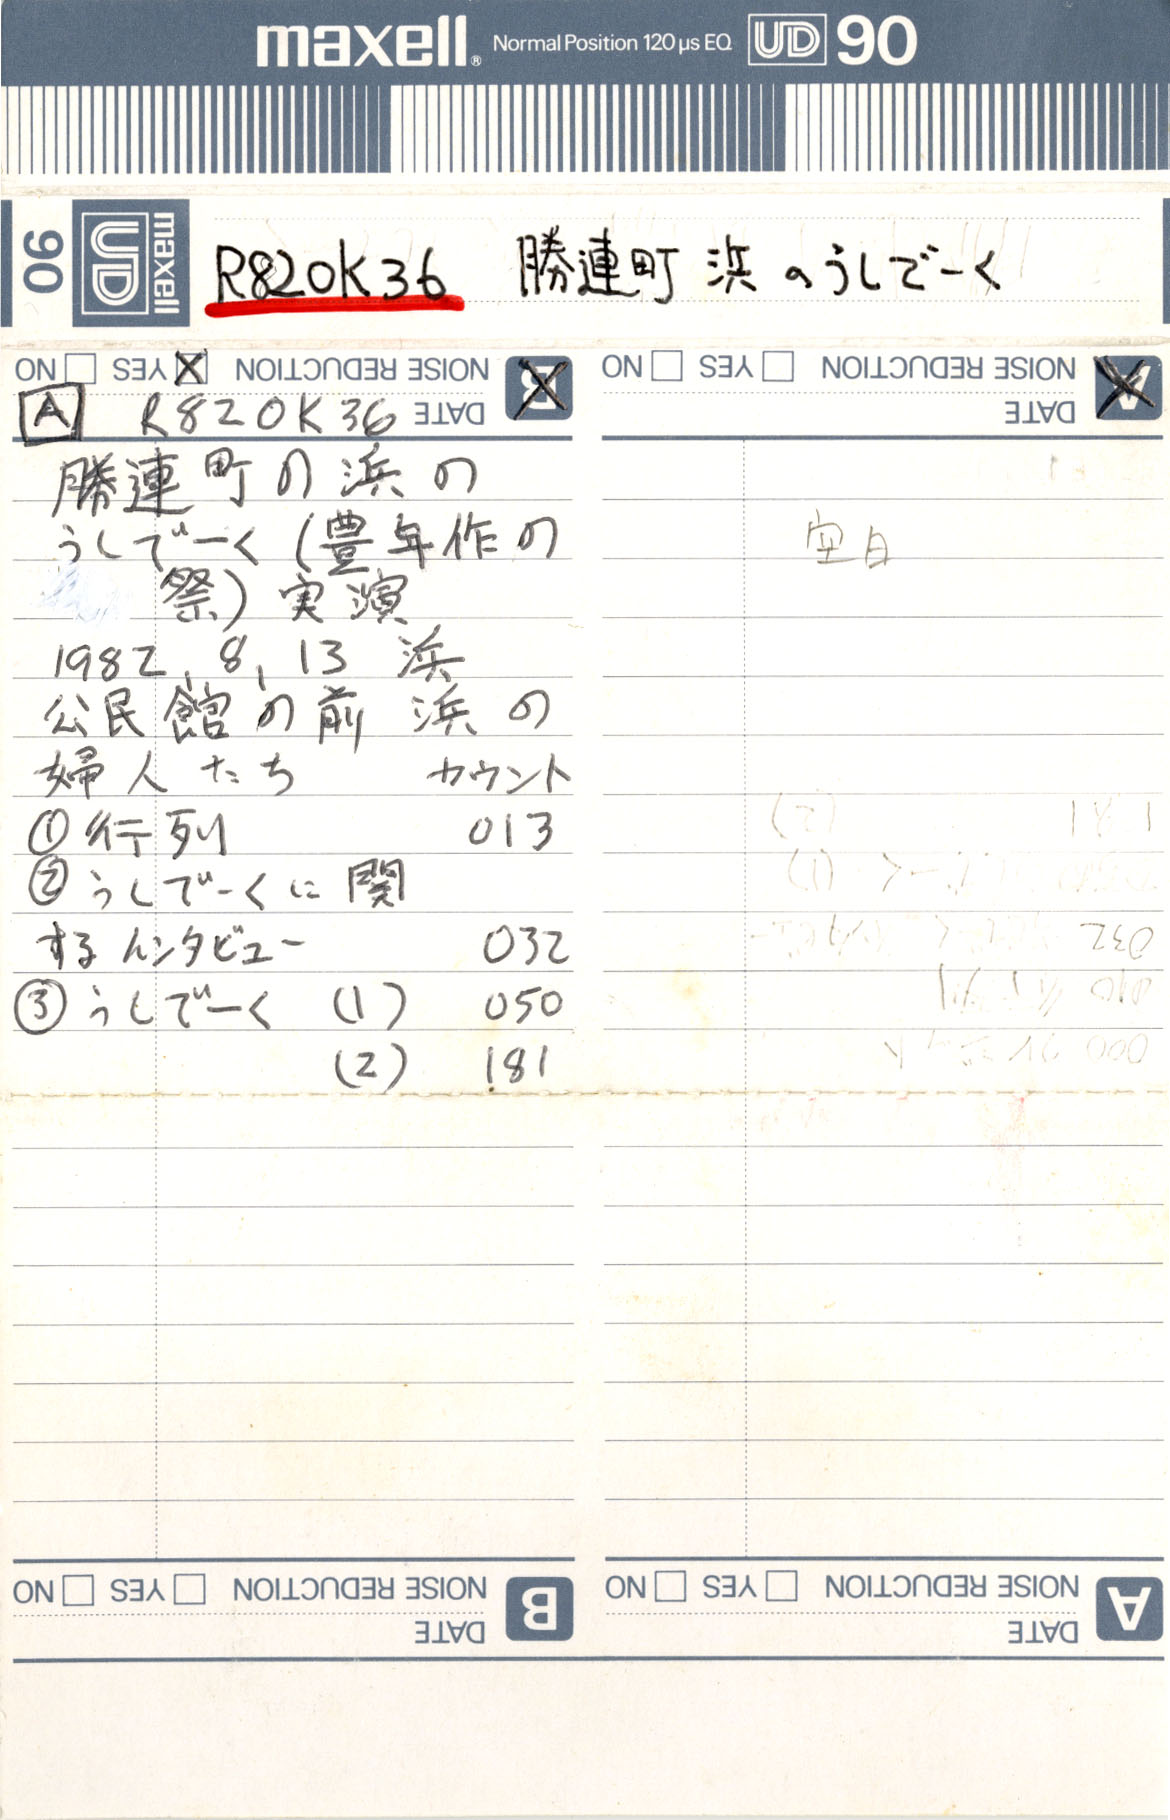 maxell® Normal Position 120 µs EQ UD 90
90 UD maxell
R820K36 勝連町 浜のうしでーく
B NOISE REDUCTION YES NO
DATE
A R820K36
勝連町の浜の
うしでーく(豊年作の
祭)実演
1982,8,13 浜
公民館の前 浜の
婦人たち カウント
①行列 013
②うしでーくに関
するインタビュー 032
③うしでーく (1) 050
(2) 181
A NOISE REDUCTION YES NO
DATE
空白
(2) 181
032
000
B NOISE REDUCTION YES NO
DATE
A NOISE REDUCTION YES NO
DATE